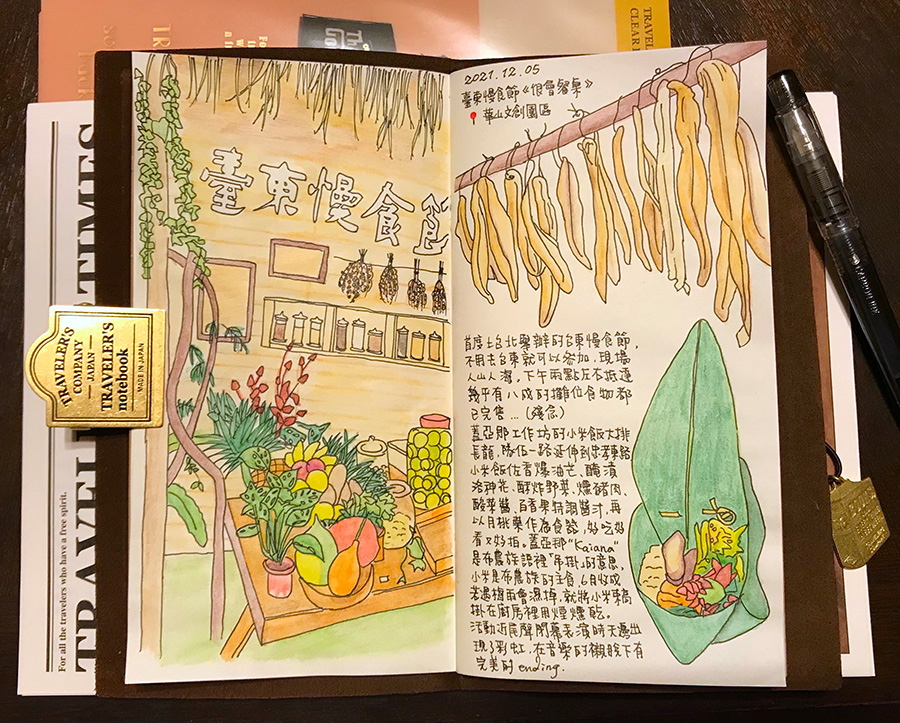 TRAVELER'S
CLEAR
TRAVELER'S
COMPANY
JAPAN
TRAVELER'S
notebook
MADE IN JAPAN
For all the travelers who have a free spirit.
TIMES
臺東慢食
2021.12.05
臺東慢食節《很會智桌》
華山文創園區
首度在台北舉辦的台東慢食節,
不用去台東就可以參加,現場
人山人海,下午兩點左右抵達
幾乎有八成的攤位食物都
已完售...(殘念)
蓋亞那工作坊的小米飯大排
長龍,隊伍一路延伸到忠孝東路
小米飯佐香爆油芒、醃漬
洛神花、酥炸野菜、燻豬肉、
酸菜醬,百香果特調醬汁,再
以月桃葉作為食器,好吃好
看又好拍。蓋亞那"Kaiana"
是布農族語裡「吊掛」的意思,
小米是布農族的主食,6月收成
若遇梅雨會濕掉,就將小米束高
掛在廚房裡用煙燻乾。
活動近尾聲閉幕表演時天邊出
現了彩虹,在音樂的襯脫下有
完美的 ending.